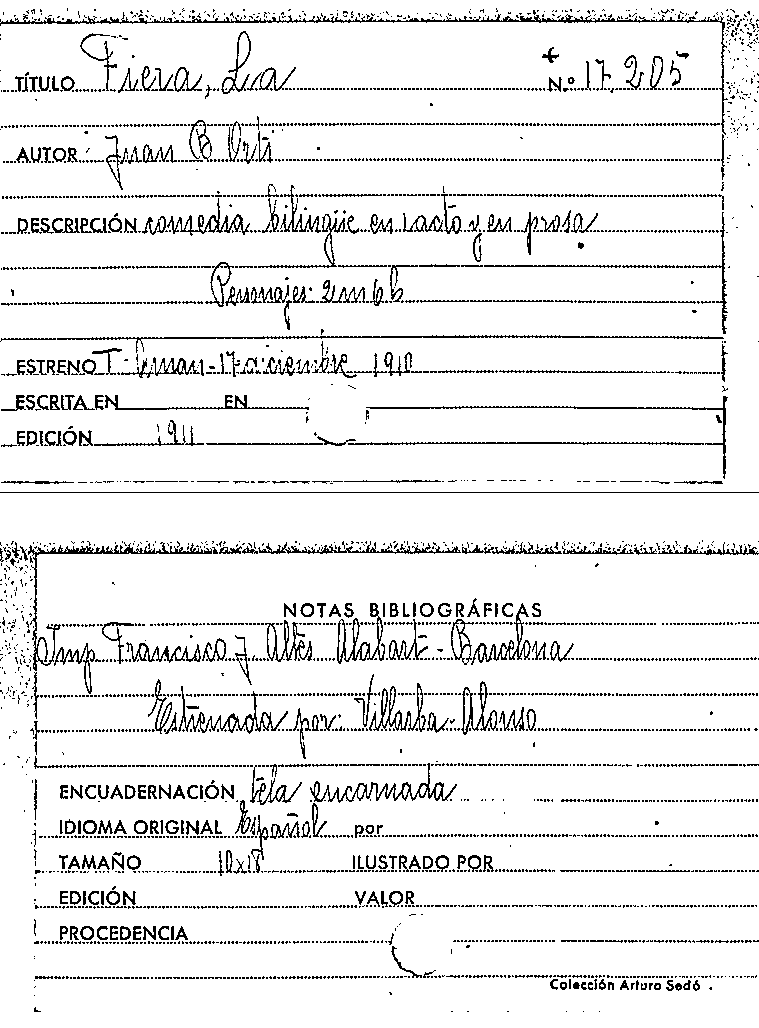 TÍTULO Fiera, La Nº 17.205
AUTOR Juan B Orti
DESCRIPCIÓN comedia bilingüe en 1 acto y en prosa
Personajes: 2 m 6 h
ESTRENO T- 17 diciembre 1910
ESCRITA EN EN
EDICIÓN 1911
NOTAS BIBLIOGRÁFICAS
Imp Francisco J Altés Alabart - Barcelona
Estrenada por: Villarba - Alonso
ENCUADERNACIÓN tela encarnada
IDIOMA ORIGINAL Español por
TAMAÑO 10x18 ILUSTRADO POR
EDICIÓN VALOR
PROCEDENCIA
Colección Arturo Sedó